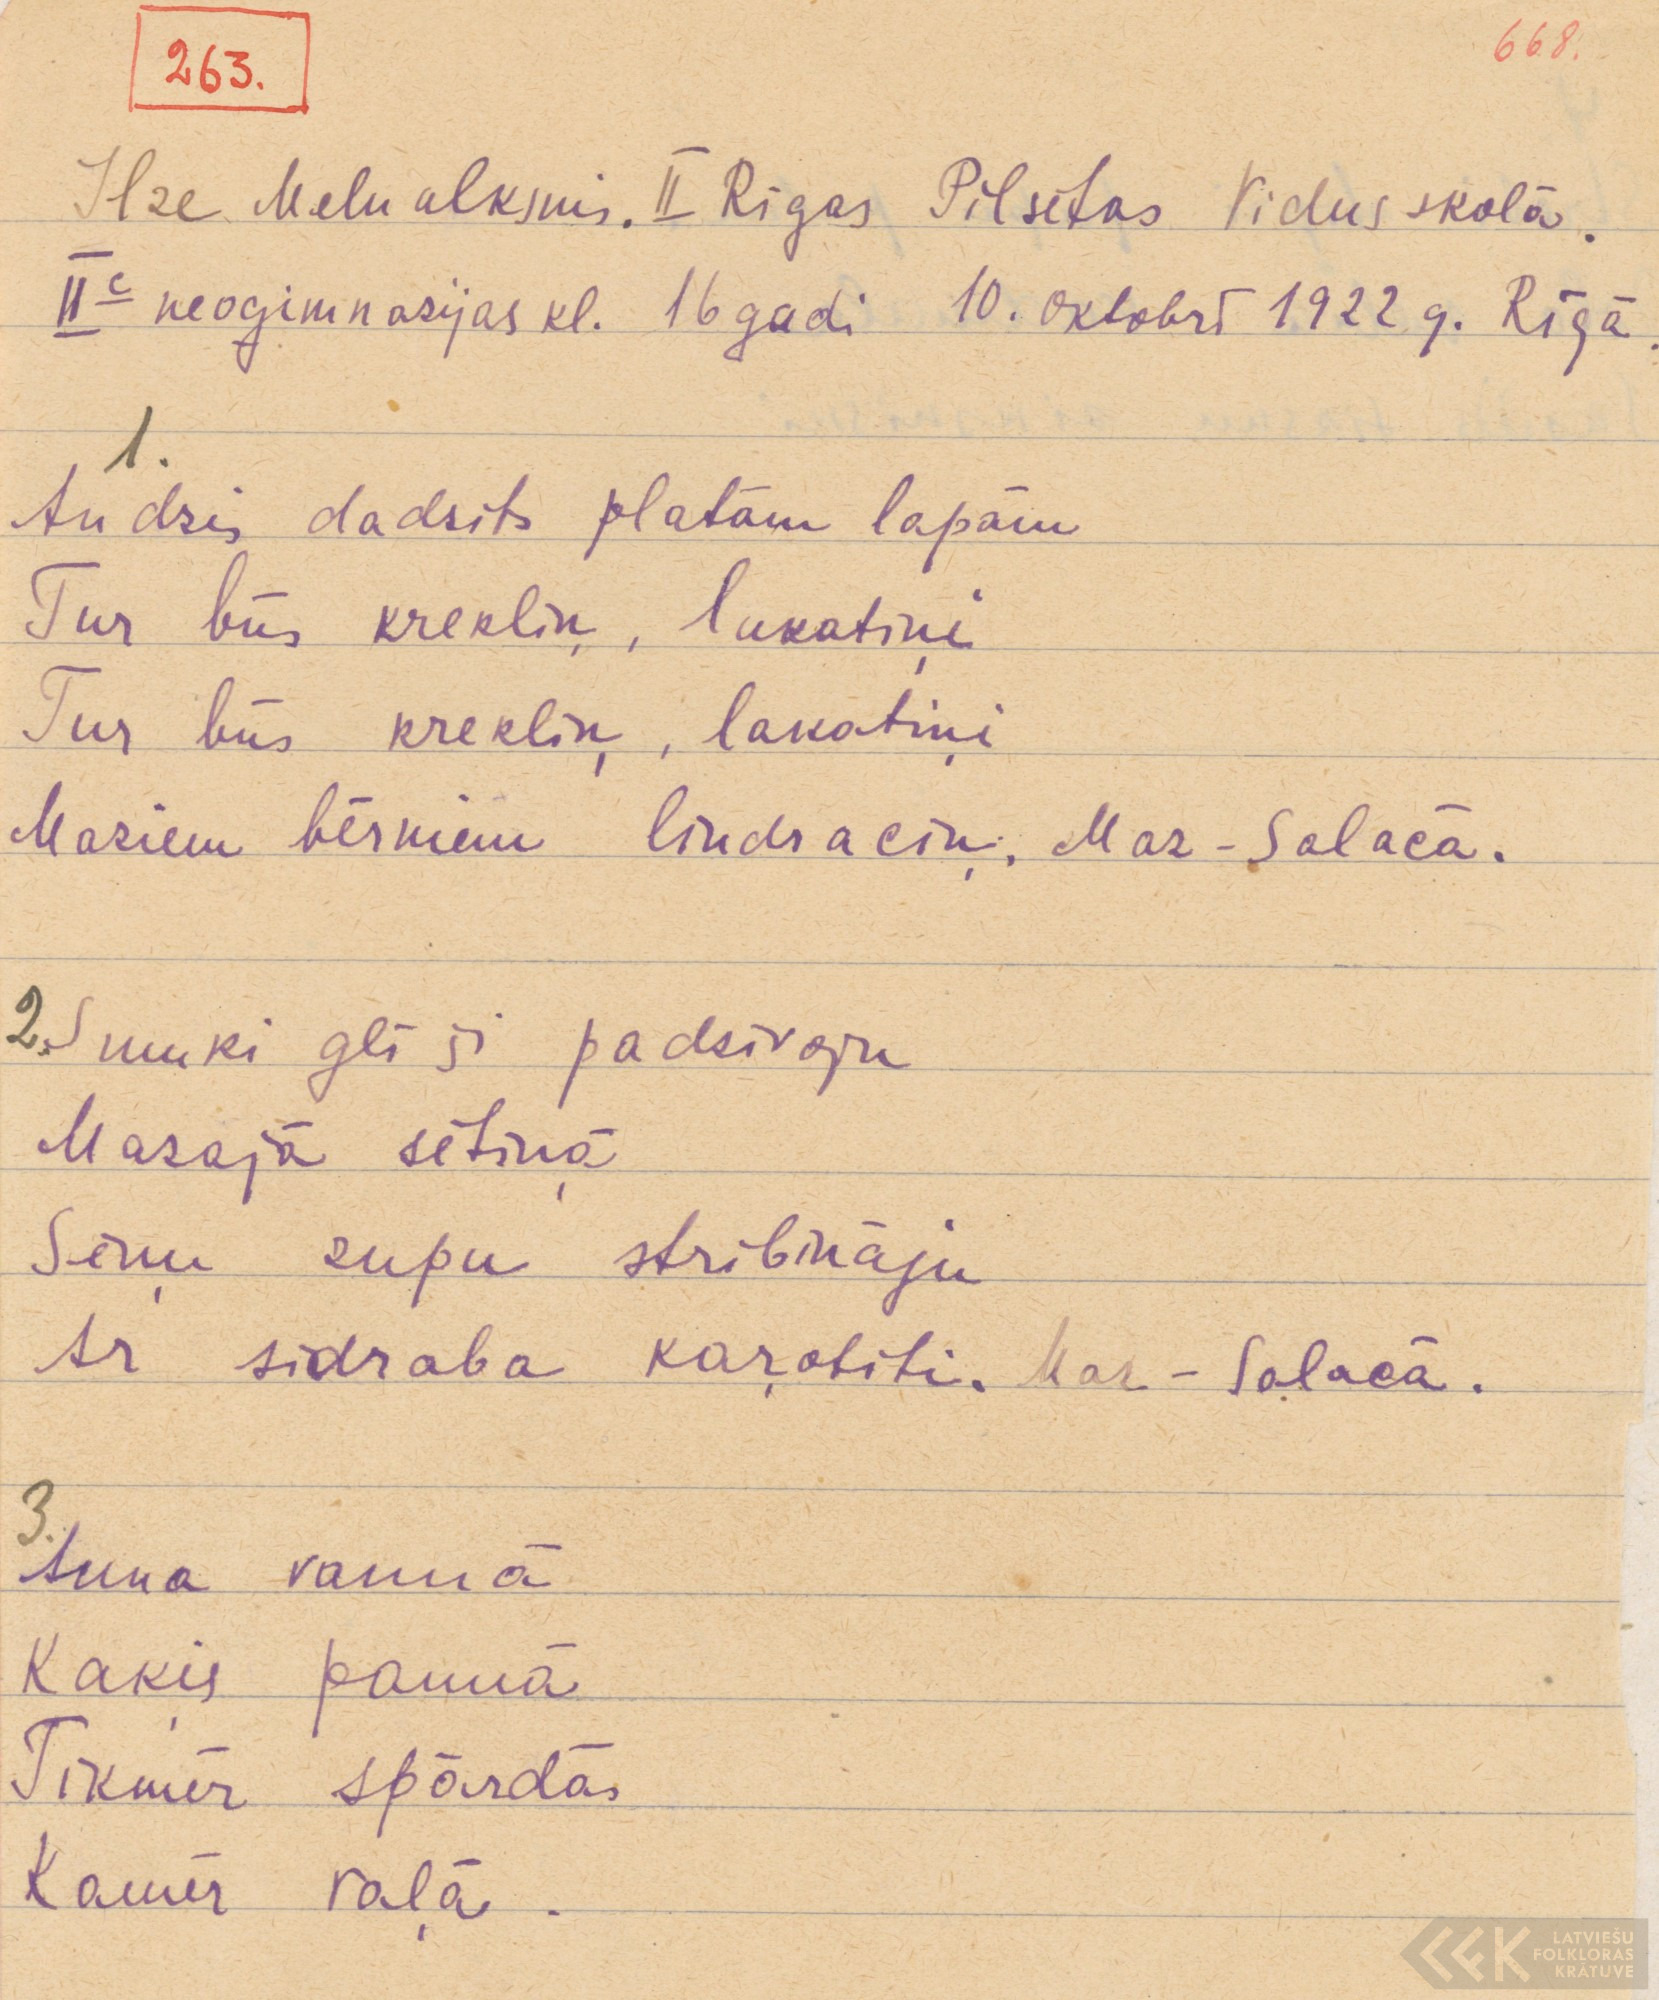 263.
668.
Ilze Melnalksnis. II Rīgas Pilsētas Vidusskolā.
II c neogimnazijas kl. 16 gadi 10. oktobrī 1922 g. Rīgā.
1.
Audzis dadzits platām lapām
Tur būs krekliņ, lukatiņi
Tur būs krekliņ, lakatiņi
Maziem bērniem lindraciņ. Maz-Salacā.
2. Smuki glīši padzīvoju
Mazajā sētiņā
Sēņu zupu stribināju
Ar sidraba kaŗotiti. Maz-Salacā.
3.
Anna vannā
Kaķis pannā
Tikmēr spārdās
Kamēr vaļā.
LATVIEŠU
FOLKLORAS
KRĀTUVE